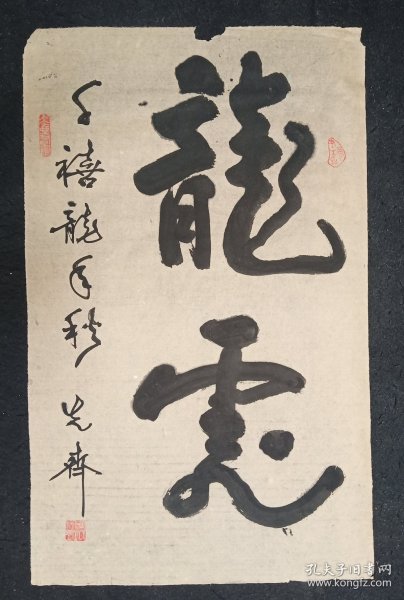 龍虎
千禧龍年秋 先齊
孔夫子旧书网
www.kongfz.com